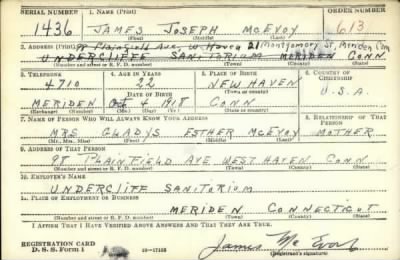 SERIAL NUMBER 1. NAME (Print) ORDER NUMBER
1436 JAMES JOSEPH McEVOY 613
(First) (Middle) (Last)
2. ADDRESS (Print) 98 Plainfield Ave W Haven 21 Montgomery St. Meriden Conn
UNDERCLIFF SANITORIUM MERIDEN CONN
(Number and street or R. F. D. number) (Town) (County) (State)
3. TELEPHONE 4. AGE IN YEARS 5. PLACE OF BIRTH 6. COUNTRY OF CITIZENSHIP
4710 22 NEW HAVEN
DATE OF BIRTH (Town or county) U.S.A.
MERIDEN Oct 4 1918 CONN
(Exchange) (Mo.) (Day) (Yr.) (State or country)
7. NAME OF PERSON WHO WILL ALWAYS KNOW YOUR ADDRESS 8. RELATIONSHIP OF THAT PERSON
MRS GLADYS ESTHER McEVOY MOTHER
(Mr., Mrs., Miss) (First) (Middle) (Last)
9. ADDRESS OF THAT PERSON
98 PLAINFIELD AVE WEST HAVEN CONN
(Number and street or R. F. D. number) (Town) (County) (State)
10. EMPLOYER'S NAME
UNDERCLIFF SANITORIUM
11. PLACE OF EMPLOYMENT OR BUSINESS
MERIDEN CONNECTICUT
(Number and street or R. F. D. number) (Town) (County) (State)
I AFFIRM THAT I HAVE VERIFIED ABOVE ANSWERS AND THAT THEY ARE TRUE.
REGISTRATION CARD
D. S. S. Form 1 James McEvoy
(Registrant's signature)